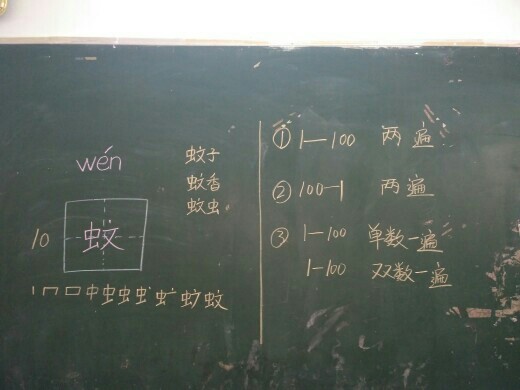 wén
蚊子
蚊香
蚊虫
10
蚊
丨 冂 口 中 虫 虫 虫丶 虫亠 虫ナ 蚊
① 1—100 两遍
② 100—1 两遍
③ 1—100 单数一遍
1—100 双数一遍